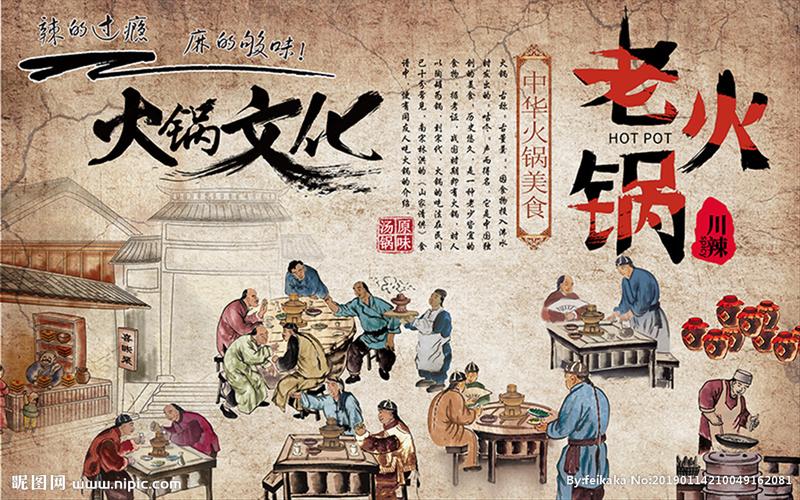 辣的过瘾
麻的够味!
火锅文化
火锅，古称，古董羹，因食物投入沸水
时发出的，咕咚，声而得名，它是中国独
创的美食，历史悠久，是一种老少皆宜的
食物，据考证，战国时期即有火锅，时人
以陶罐为锅，到宋代，火锅的吃法在民间
已十分常见，南宋林洪的《山家清供》食
谱中，便有同友人吃火锅的介绍。
原味
汤锅
中华火锅美食
老火锅
HOT POT
川辣
昵图网 www.nipic.com
By:feikaka No:20190114210049162081